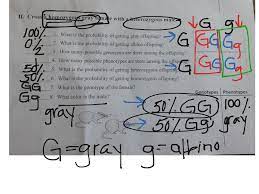 II. Cross a homozygous gray female with a heterozygous male
G g
100% 1. What is the probability of getting gray offspring? G GG Gg
0% 2. What is the probability of getting albino offspring?
3. How many possible genotypes are there among the
4. How many possible phenotypes are there among the G GG Gg
50% 5. What is the probability of getting heterozygous offspring?
50% 6. What is the probability of getting homozygous
GG 7. What is the genotype of the female? Genotypes Phenotypes
Gg 8. What color is the male? 50% GG 100%
gray 50% Gg gray
G=gray g=albino